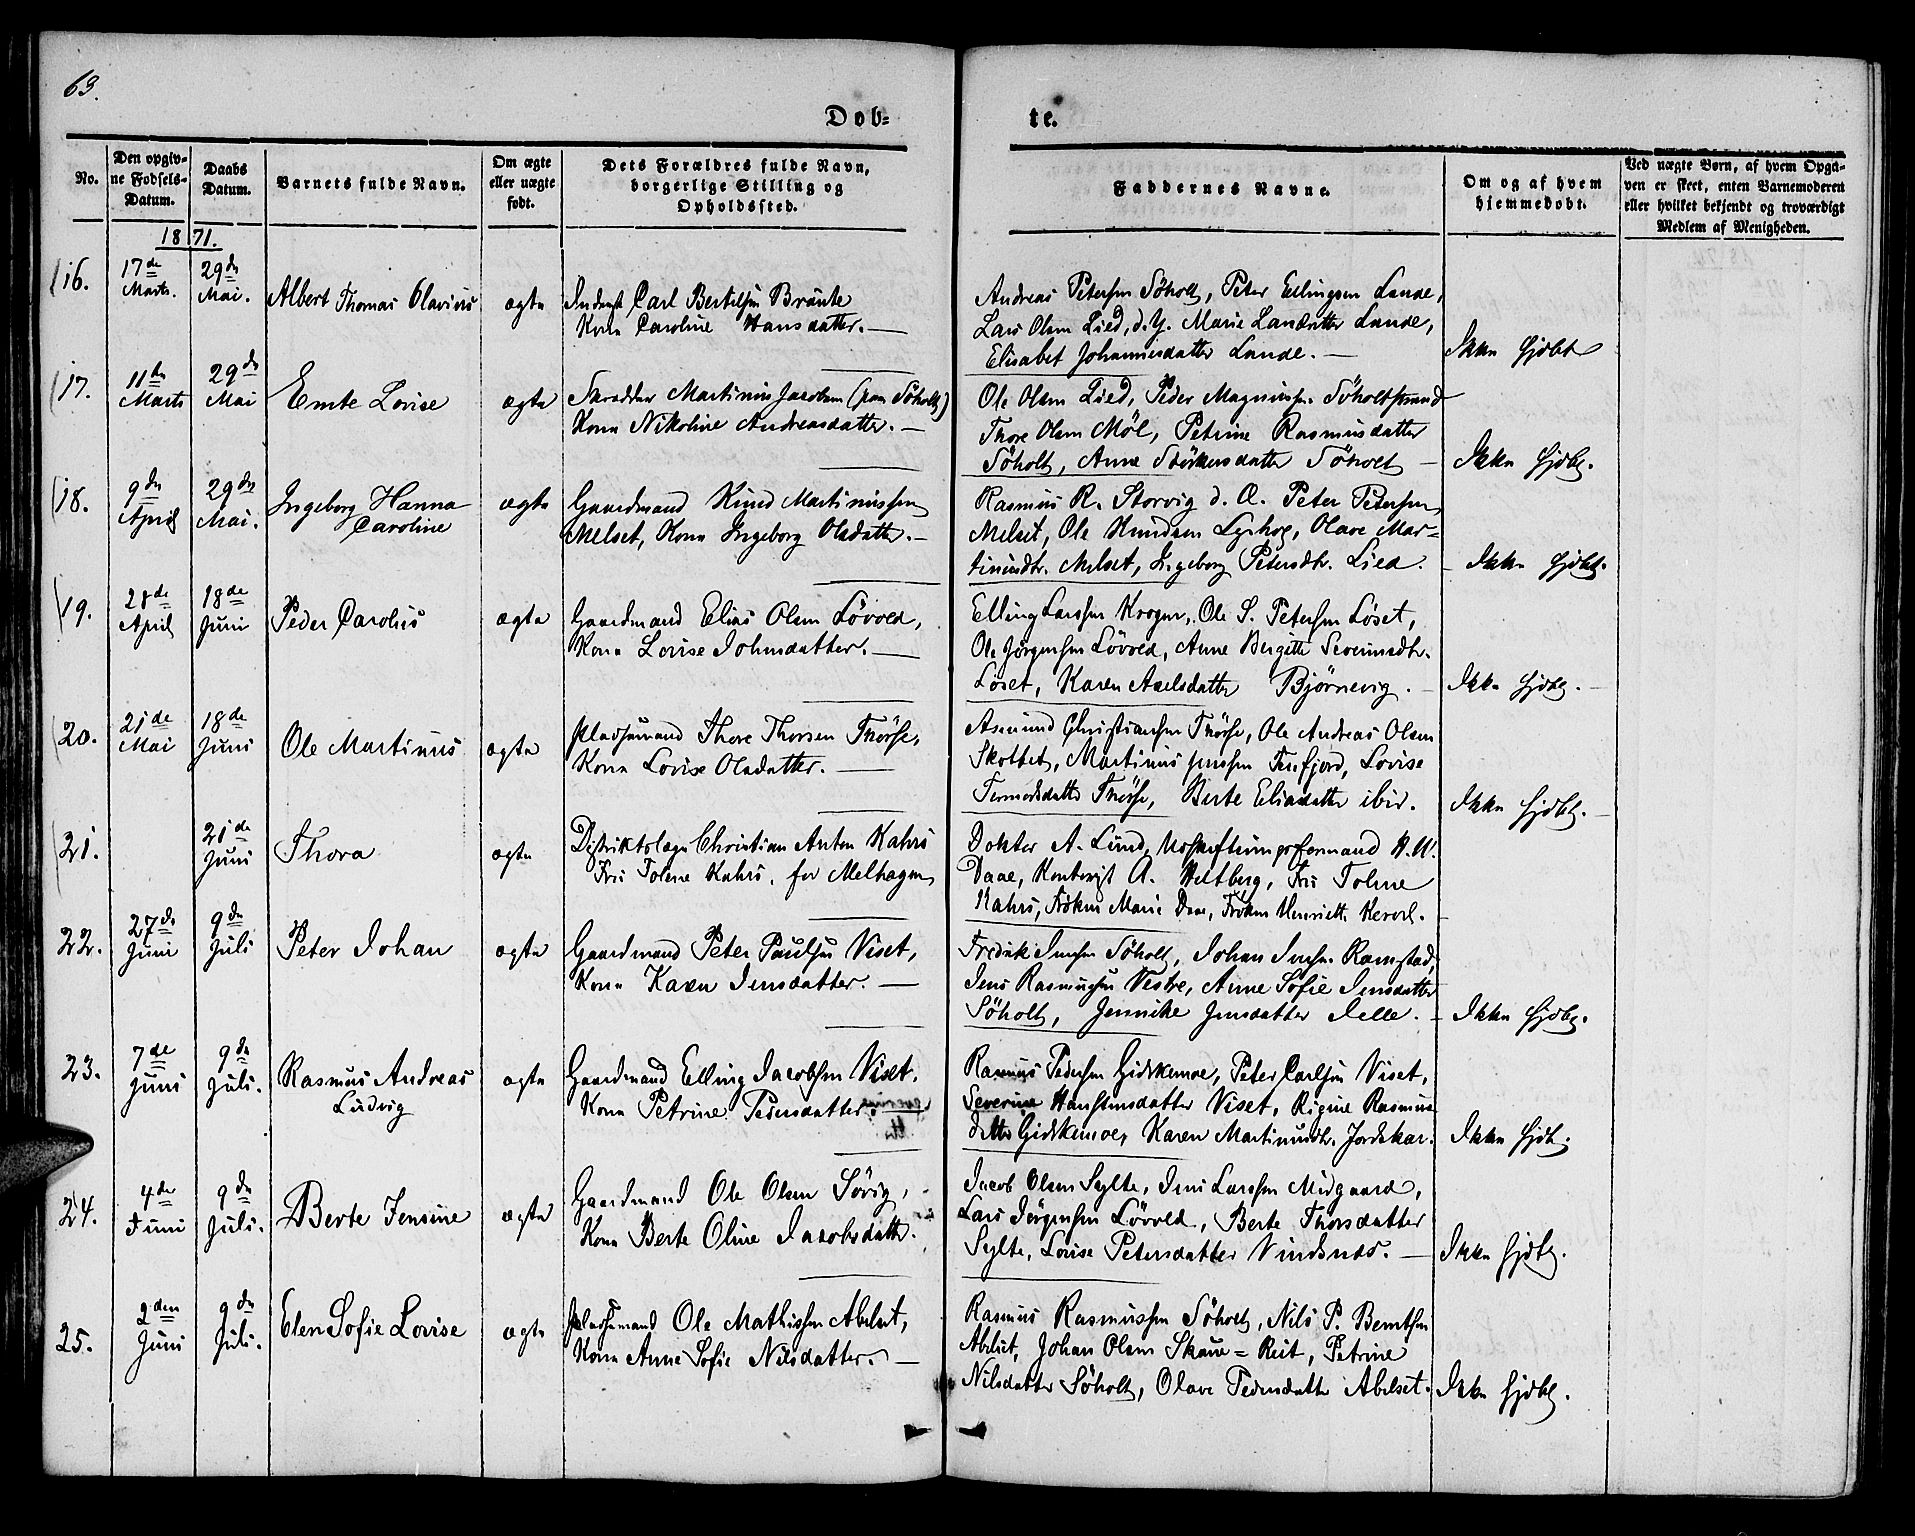 63.
Døb=
te.
No.
Den opgiv-
ne Fødsels-
Datum.
Daabs
Datum.
Barnets fulde Navn.
Om ægte
eller uægte
født.
Dets Forældres fulde Navn,
borgerlige Stilling og
Opholdssted.
Faddernes Navne.
Om og af hvem
hjemmedøbt.
Ved uægte Børn, af hvem Opgi-
ven er skeet, enten Barnemoderen
eller hvilket bekjendt og troværdigt
Medlem af Menigheden.
1871.
16.
17de
Marts.
29de
Mai.
Albert Thomas Olavius
ægte
Inderst Carl Bertilsen Braute
Kone Caroline Hansdatter.
Andreas Petersen Søholt, Peter Ellingsen Lande,
Lars Olsen Lied, d.y. Marie Larsdatter Lande,
Elisabet Johannesdatter Lande.
Ikke hjdbt
17.
11de
Marts
29de
Mai
Emte Lovise
ægte
Skrædder Martinus Jacobsen (paa Søholt)
Kone Nikoline Andreasdatter.
Ole Olsen Lied, Peder Magnussen Søholtstrand
Thore Olsen Møl, Petrine Rasmusdatter
Søholt, Anne Størkersdatter Søholt
Ikke hjdbt.
18.
9de
April
29de
Mai.
Ingeborg Hanna
Caroline
ægte
Gaardmand Knud Martinussen
Melset, Kone Ingeborg Olsdatter.
Rasmus R. Storvig d. Æ. Peter Petersen
Melset, Ole Knudsen Lyshog, Olave Mar=
tinusdtr. Melset, Ingeborg Petersdtr. Lied.
Ikke hjdbt.
19.
28de
April
18de
Juni
Peder Carolus
ægte
Gaardmand Elias Olsen Løvold,
Kone Lovise Johnsdatter.
Elling Larssen Krogen, Ole S. Petersen Løset,
Ole Jørgensen Løvold, Anne Birgitte Severinsdtr.
Løset, Karen Axelsdatter Bjørnevig.
Ikke hjdbt.
20.
21de
Mai
18de
Juni
Ole Martinus
ægte
Pladsemand Thore Thorsen Fnørse,
Kone Lovise Olsdatter.
Asmund Christiansen Fnørse, Ole Andreas Olsen
Skottet, Martinus Jenssen Tenfjord, Lovise
datter Fnørse, Berte Eliasdatter ibid.
Ikke hjdbt.
21.
21de
Juni
Thora
ægte
Distriktslæge Christian Anton Kahrs
Fru Toline Kahrs, før Melhagen
Dokter A. Lund, Udskiftningsformand H. W.
Daae, A. Heltberg, Fru Toline
Kahrs, Frøken Marie Daae, Frøken Henriette
22.
27de
Juni
9de
Juli
Peter Johan
ægte
Gaardmand Peter Paulsen Viset,
Kone Karen Jensdatter.
Fredrik Jensen Søholt, Johan Ramstad,
Jens Rasmussen Vestre, Anne Sofie Jensdatter
Søholt, Jennike Jensdatter Jelle.
Ikke hjdbt.
23.
7de
Juni
9de
Juli.
Rasmus Andreas
Ludvig
ægte
Gaardmand Elling Jacobsen Viset.
Kone Petrine Pedersdatter.
Rasmus Pedersen Gidskemoe, Peter Carlsen Viset,
Severine Hanstensdatter Viset, Rigine Rasmus
datter Gidskemoe, Karen Martinusdtr. Jordskar.
Ikke hjdbt.
24.
4de
Juni
9de
Juli.
Berte Jensine
ægte
Gaardmand Ole Olsen Søvig,
Kone Berte Oline Jacobsdatter.
Jacob Olsen Sylte, Jens Larssen Midgaard,
Lars Jørgensen Løvold, Berte Thorsdatter
Sylte, Lovise Petersdatter Vindsnæs.
Ikke hjdbt.
25.
2den
Juni
9de
Juli.
Elen Sofie Lovise
ægte
Pladsemand Ole Mathissen Abelset,
Kone Anne Sofie Nilsdatter.
Rasmus Rasmussen Søholt, Nils P. Berntsen
Abelset, Johan Olsen Skaue=Reit, Petrine
Nilsdatter Søholt, Olave Pedersdatter Abelset.
Ikke hjdbt.